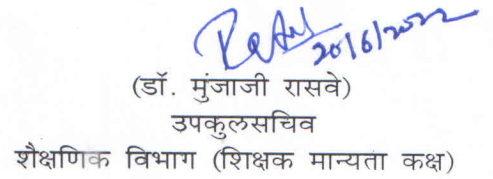 20/6/2022
(डॉ. मुंजाजी रासवे)
उपकुलसचिव
शैक्षणिक विभाग (शिक्षक मान्यता कक्ष)